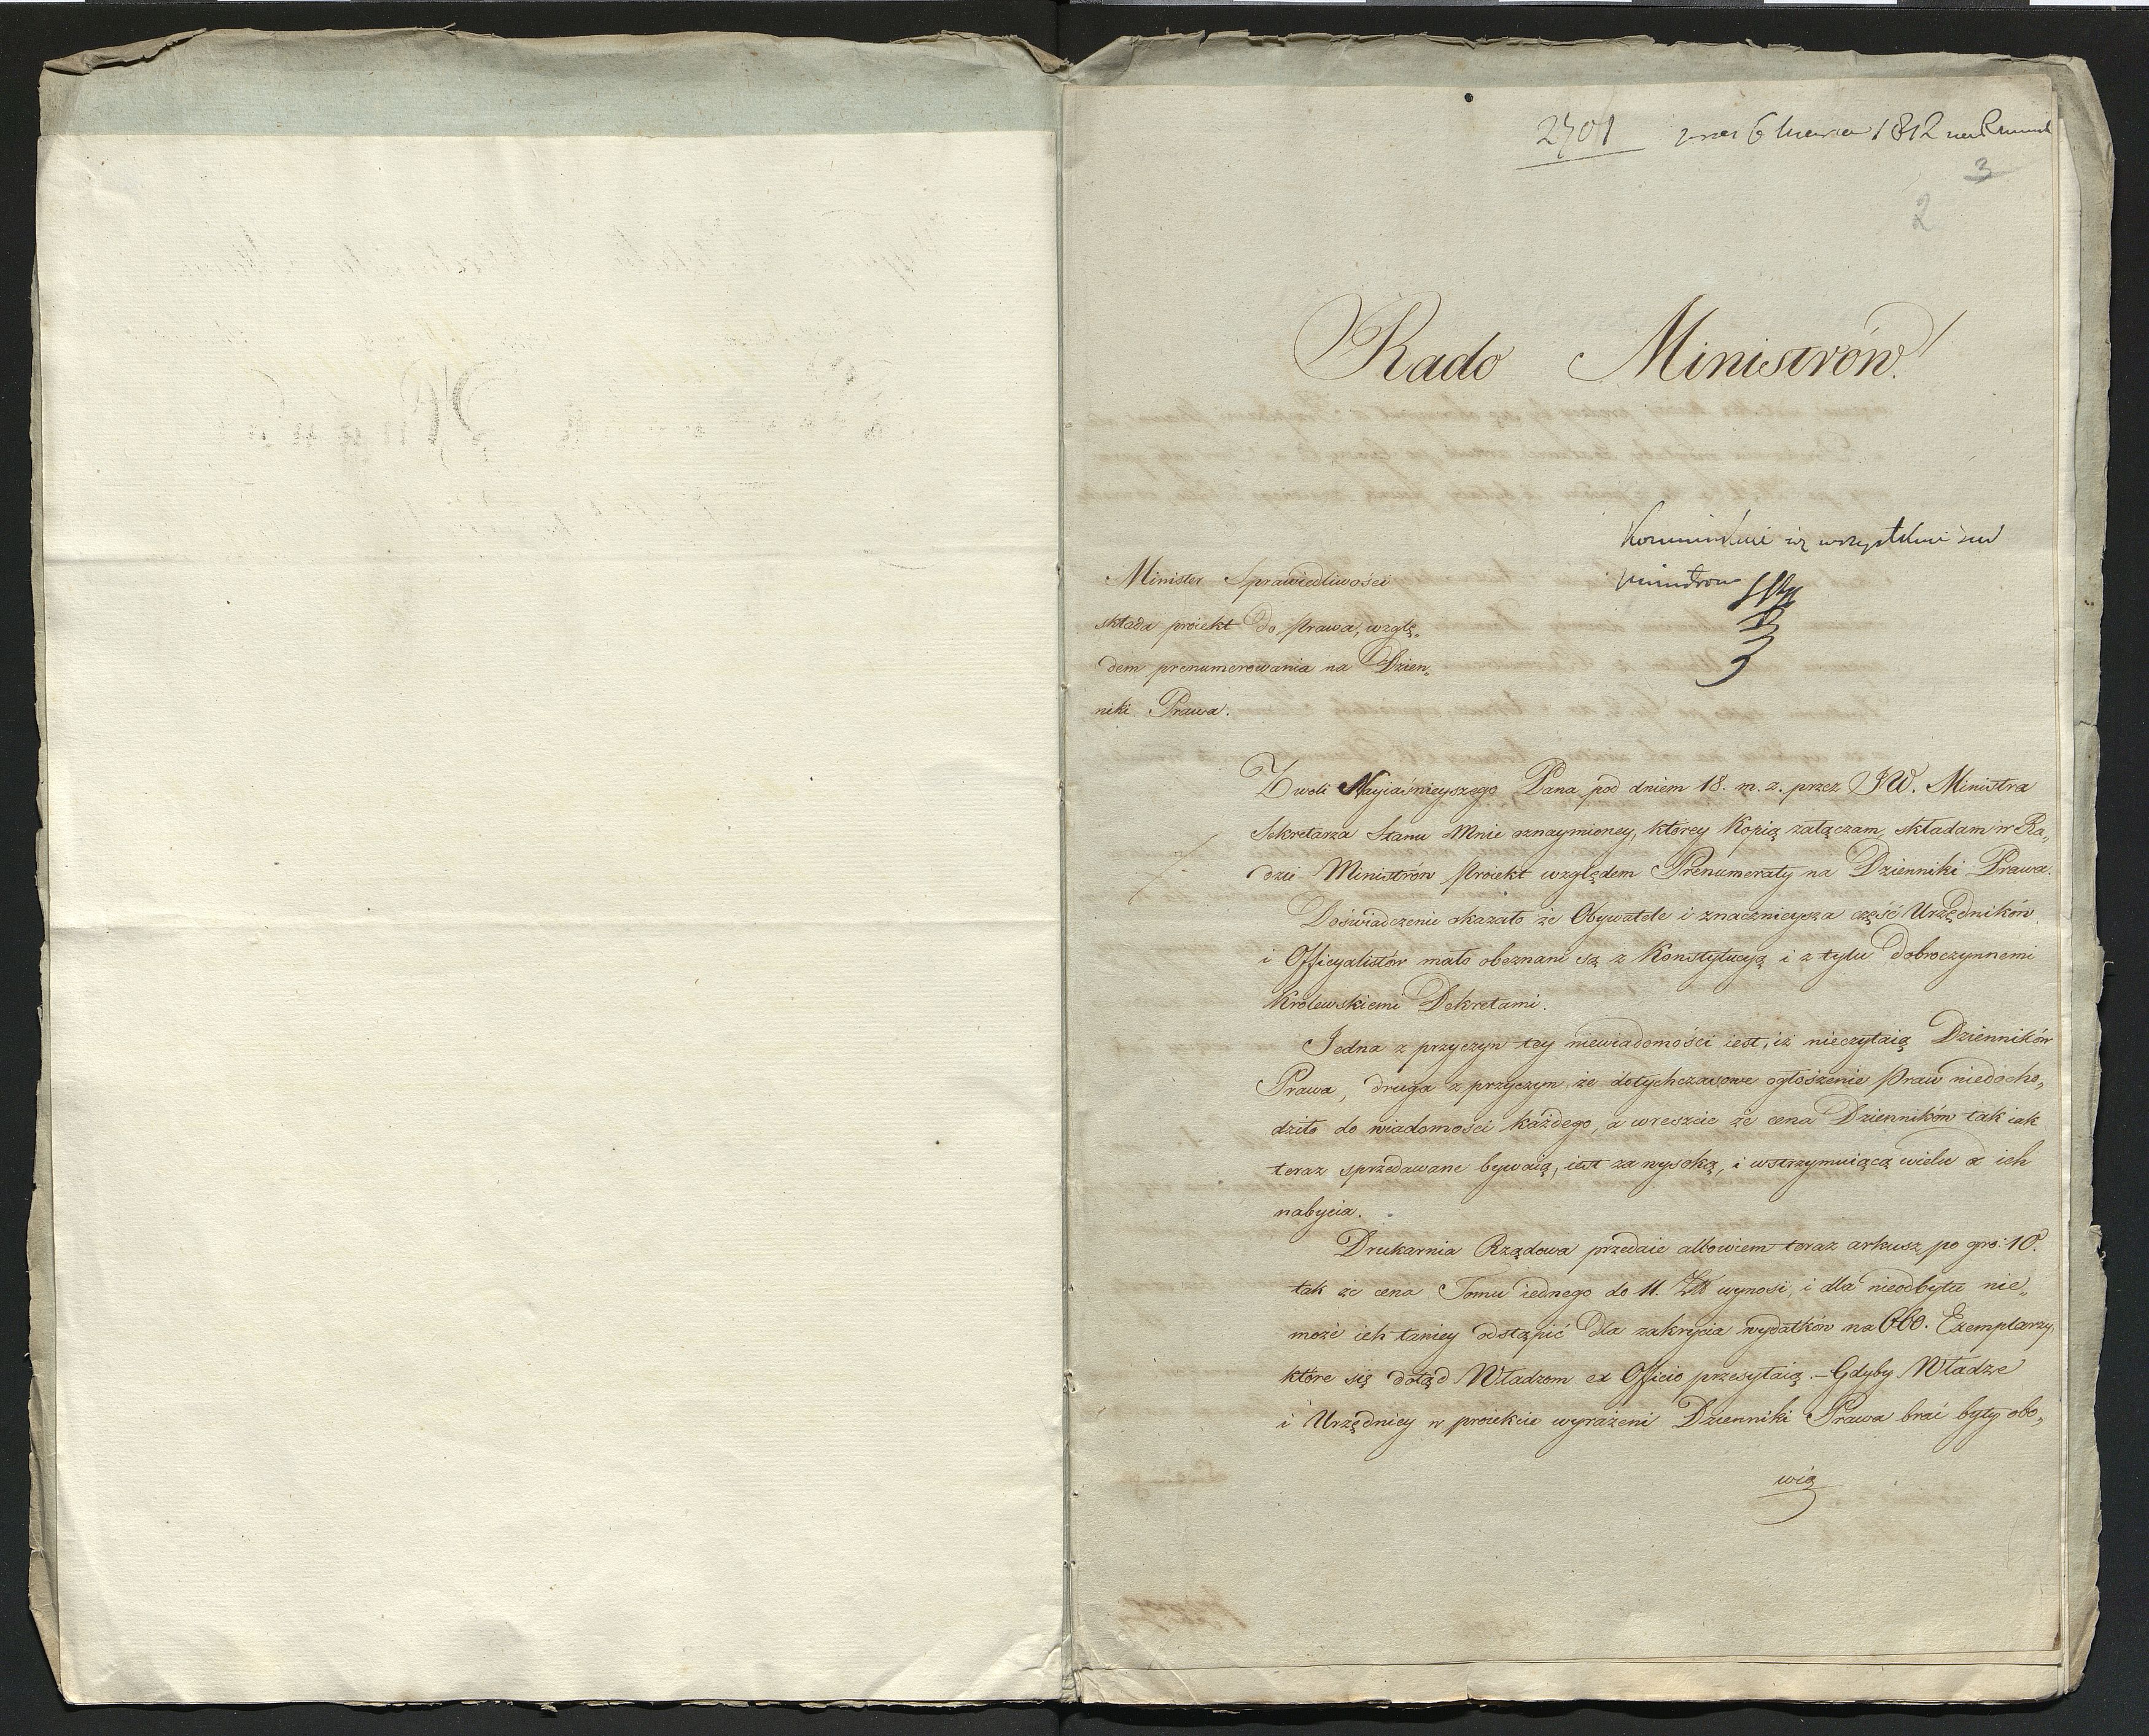 2701 6 Marca 1812
3
2
Rado Ministrów!
Minister Sprawiedliwości
składa proiekt do prawa, wzglę„
dem prenumerowania na Dzien„
niki Prawa.
wszystkimi
Ministrom
Z woli Nayiaśnieyszego Pana pod dniem 18. m. z. przez JW. Ministra
Sekretarza Stanu Mnie oznaymioney, ktorey Kopią załączam, składam w Ra„
dzie Ministrów proiekt względem Prenumeraty na Dzienniki Prawa.
Doświadczenie okazało że Obywatele i znacznieysza część Urzędników
i Officyalistów mało obeznani są z Konstytucyą i z tylu dobroczynnemi
Krolewskiemi Dekretami.
Jedna z przyczyn tey niewiadomości iest, iż nieczytaią Dzienników
Prawa, druga z przyczyn, że dotychczasowe ogłoszenie praw niedocho„
dziło do wiadomości każdego, a wreszcie że cena Dzienników tak iak
teraz sprzedawane bywaią, iest za wysoką, i wstrzymuiącą wielu od ich
nabycia.
Drukarnia Rządowa przedaie albowiem teraz arkusz po gro: 10.
tak że cena Tomu iednego do 11. Złt wynosi, i dla nieodbytu nie„
może ich taniey odstąpić dla zakrycia wydatków na 660. Exemplarzy,
które się dotąd Władzom ex Officio przesyłaią. – Gdyby Władze
i Urzędnicy w proiekcie wyrażeni Dzienniki Prawa brać byli obo„
wią